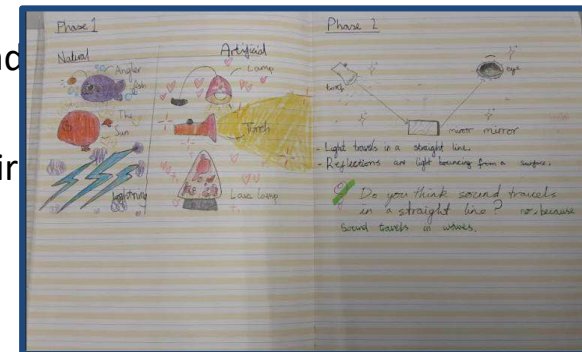 nd
ir
Phase 1
Natural
Artificial
Angler fish
Lamp
The Sun
Torch
Lightning
Lava lamp
Phase 2
torch
eye
mirror
- Light travels in a straight line.
- Reflections are light bouncing from a surface.
Do you think sound travels
in a straight line? no, because
sound travels in waves.